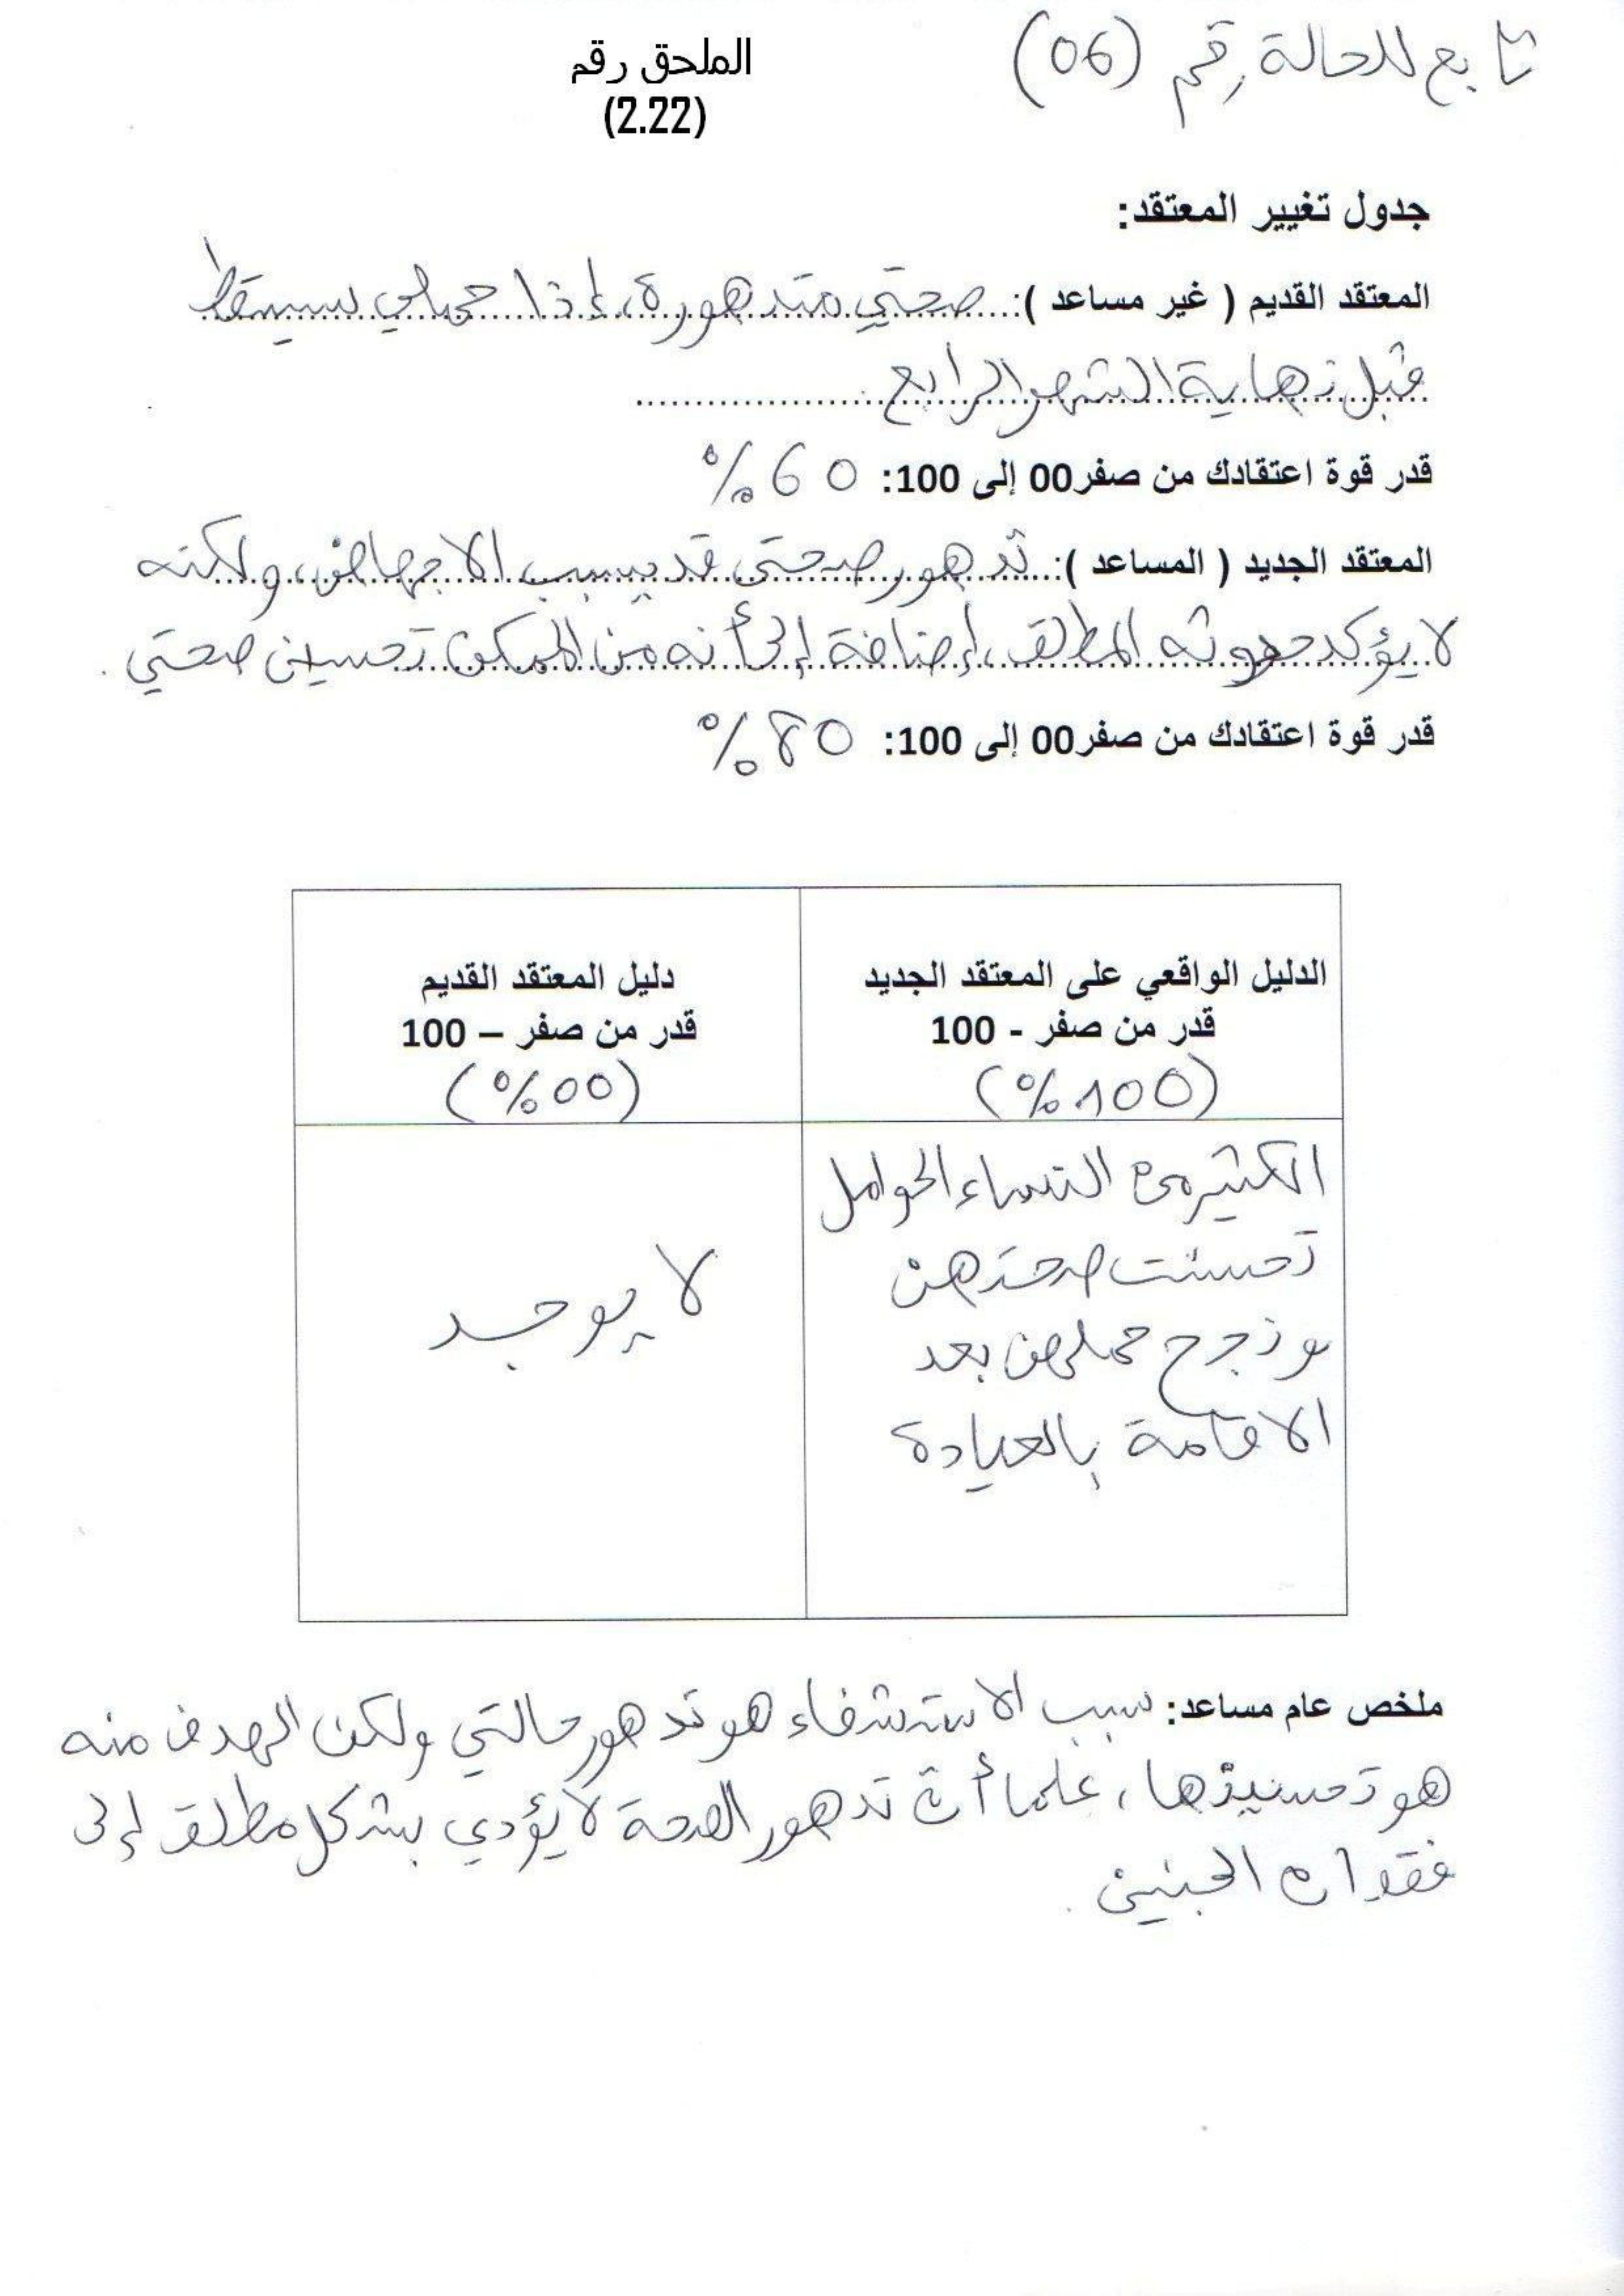 تابع للحالة رقم (06)
الملحق رقم
(2.22)
جدول تغيير المعتقد:
المعتقد القديم ( غير مساعد ): صحتي متدهورة، إذا حملي سيسقط
قبل نهاية الشهر الرابع
قدر قوة اعتقادك من صفر00 إلى 100: 60%
المعتقد الجديد ( المساعد ): تدهور صحتي قد يسبب الاجهاض، ولكنه
لا يؤكد حدوثه المطلق، إضافة إلى أنه من الممكن تحسين صحتي.
قدر قوة اعتقادك من صفر00 إلى 100: 80%
الدليل الواقعي على المعتقد الجديد
قدر من صفر - 100
(100%)
الكثير من النساء الحوامل
تحسنت صحتهن
و نجح حملهن بعد
الاقامة بالعيادة
دليل المعتقد القديم
قدر من صفر – 100
(00%)
لا يوجد
ملخص عام مساعد: سبب الاستشفاء هو تدهور حالتي ولكن الهدف منه
هو تحسينها، علما أن تدهور الصحة لا يؤدي بشكل مطلق إلى
فقدان الجنين.